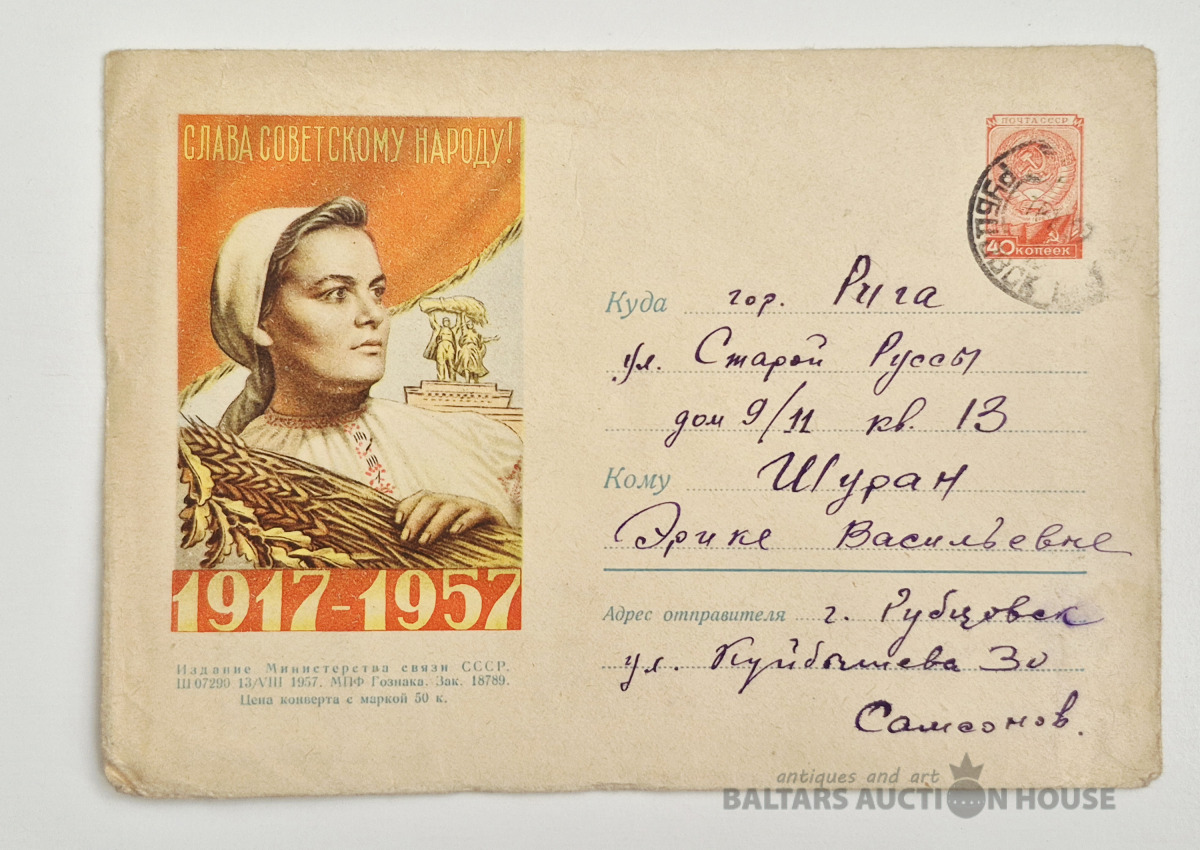 СЛАВА СОВЕТСКОМУ НАРОДУ!
1917-1957
Издание Министерства связи СССР.
Ш 07290 13/VIII 1957. МПФ Гознака. Зак. 18789.
Цена конверта с маркой 50 к.
ПОЧТА СССР
40 КОПЕЕК
Куда гор. Рига
ул. Старой Руссы
дом 9/11 кв. 13
Кому Шуран
Эрике Васильевне
Адрес отправителя г. Рубцовск
ул. Куйбышева 30
Самсонов.
antiques and art
BALTARS AUCTION HOUSE